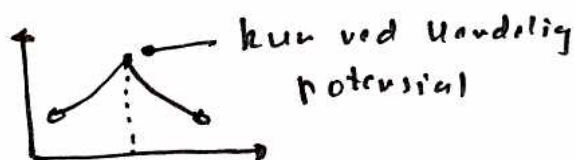 kun ved uendelig
potensial